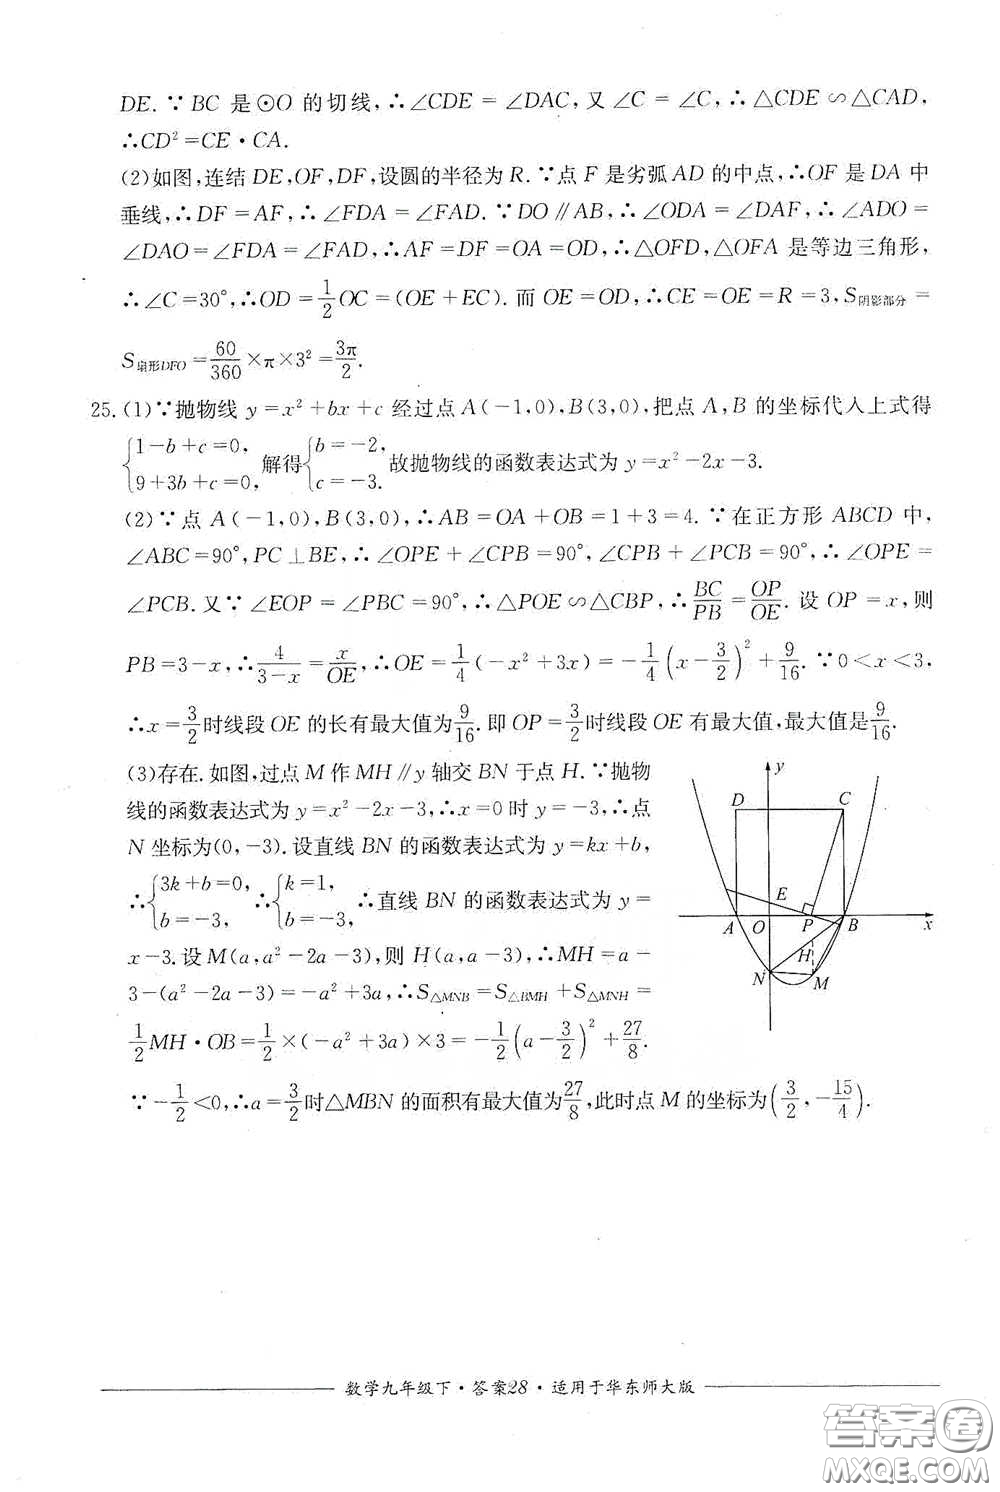 DE. ∵ BC 是 ⊙O 的切线, ∴∠CDE = ∠DAC, 又 ∠C = ∠C, ∴ △CDE ∽ △CAD,
∴CD² = CE · CA.
(2)如图,连结 DE,OF,DF,设圆的半径为 R. ∵点 F 是劣弧 AD 的中点, ∴OF 是 DA 中
垂线, ∴ DF = AF, ∴ ∠FDA = ∠FAD. ∵ DO // AB, ∴ ∠ODA = ∠DAF, ∴ ∠ADO =
∠DAO = ∠FDA = ∠FAD, ∴AF = DF = OA = OD, ∴△OFD, △OFA 是等边三角形,
∴∠C=30°, ∴OD = 1/2 OC = (OE + EC). 而 OE = OD, ∴CE = OE = R = 3, S阴影部分 =
S扇形DFO = 60/360 × π × 3² = 3π/2.
25. (1)∵抛物线 y = x² + bx + c 经过点 A(-1,0), B(3,0), 把点 A,B 的坐标代人上式得
{1-b+c=0, 9+3b+c=0, 解得 {b=-2, c=-3. 故抛物线的函数表达式为 y = x² - 2x - 3.
(2)∵点 A(-1,0), B(3,0), ∴AB = OA + OB = 1 + 3 = 4. ∵在正方形 ABCD 中,
∠ABC = 90°, PC⊥BE, ∴∠OPE + ∠CPB = 90°, ∠CPB + ∠PCB = 90°, ∴∠OPE =
∠PCB. 又∵ ∠EOP = ∠PBC = 90°, ∴△POE∽△CBP, ∴BC/PB = OP/OE. 设 OP = x, 则
PB = 3 - x, ∴4/(3-x) = x/OE, ∴OE = 1/4(-x² + 3x) = -1/4(x - 3/2)² + 9/16. ∵0 < x < 3,
∴x = 3/2时线段 OE 的长有最大值为9/16. 即 OP = 3/2时线段 OE 有最大值,最大值是9/16.
(3)存在. 如图,过点 M 作 MH // y 轴交 BN 于点 H. ∵抛物
线的函数表达式为 y = x² - 2x - 3, ∴x = 0 时 y = -3, ∴点
N 坐标为(0, -3). 设直线 BN 的函数表达式为 y = kx + b,
∴{3k+b=0, b=-3, ∴{k=1, b=-3, ∴直线 BN 的函数表达式为 y =
x - 3. 设 M(a, a² - 2a - 3), 则 H(a, a - 3), ∴MH = a -
3 - (a² - 2a - 3) = -a² + 3a, ∴S△MNB = S△BMH + S△MNH =
1/2 MH · OB = 1/2 × (-a² + 3a) × 3 = -1/2(a - 3/2)² + 27/8.
∵ -1/2 < 0, ∴a = 3/2时△MBN 的面积有最大值为27/8, 此时点 M 的坐标为(3/2, -15/4).
y
D C
E
A O P B x
H
N M
数学九年级下·答案28·适用于华东师大版
答案卷
MXQE.COM